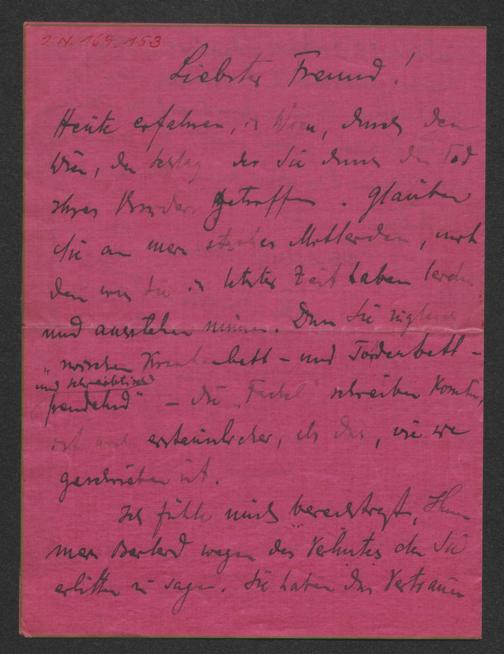 I.N. 169.153
Liebster Freund!
Heute erfahren, in Wien, durch den
Wien, den Schlag der Sie durch den Tod
Ihres Bruders getroffen. Glauben
Sie an mein Mitleiden, mit
dem was Sie in letzter Zeit haben leiden
und ausstehen müssen. Dass Sie
"zwischen Krankenbett- und Totenbett-
und Schreibtisch
pendelnd" – die "Fackel" schreiben konnten,
ist noch erstaunlicher, als das, wie sie
geschrieben ist.
Ich fühle mich berechtigt, Ihnen
mein Beileid wegen des Verlustes den Sie
erlitten zu sagen. Sie haben das Vertrauen